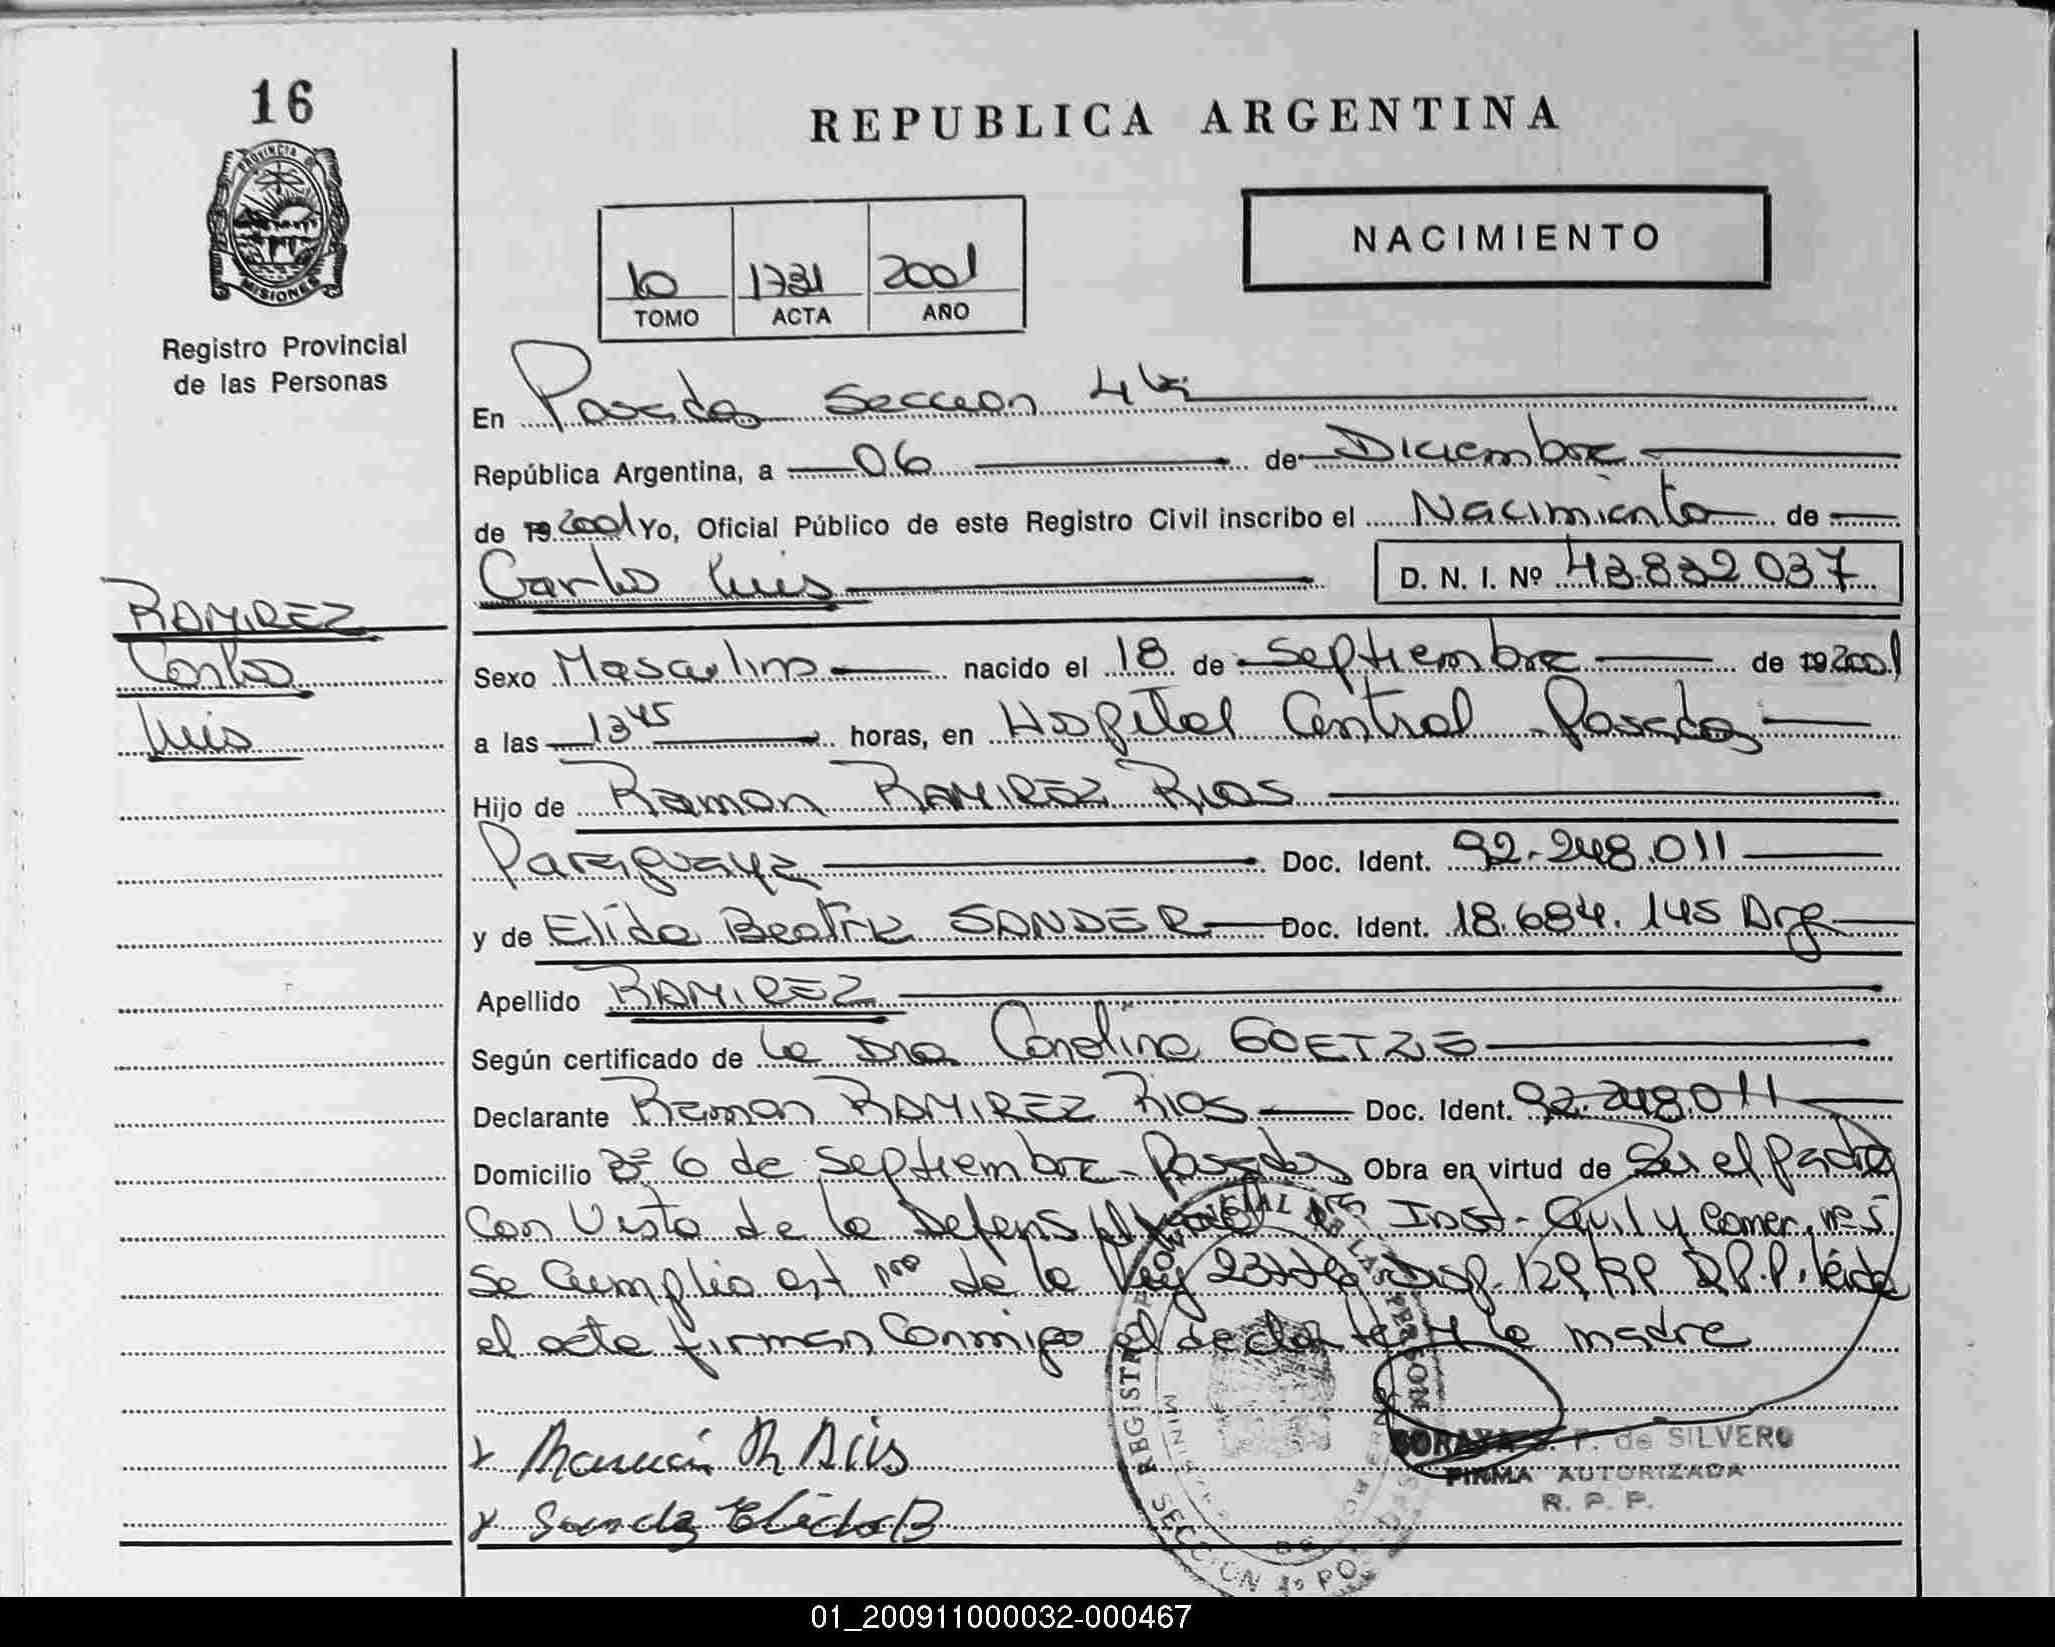 16
PROVINCIA DE
MISIONES
Registro Provincial
de las Personas
REPUBLICA ARGENTINA
10 1731 2001
TOMO ACTA AÑO
NACIMIENTO
En Posadas Seccion 4ta
República Argentina, a 06 de Diciembre
de 19 2001 Yo, Oficial Público de este Registro Civil inscribo el Nacimiento de
Carlos Luis D. N. I. Nº 43.832.037
RAMIREZ
Carlos
Luis
Sexo Masculino nacido el 18 de Septiembre de 19 2001
a las 13 45 horas, en Hospital Central Posadas
Hijo de Ramon RAMIREZ RIOS
Paraguaya Doc. Ident. 92.248.011
y de Elida Beatriz SANDER Doc. Ident. 18.684.145 Arg
Apellido RAMIREZ
Según certificado de la Dra Carolina GOETZE
Declarante Ramon RAMIREZ RIOS Doc. Ident. 92.248.011
Domicilio Bº 6 de Septiembre - Posadas Obra en virtud de Ser el padre
Con Vista de la Defens Inst. Civil y Comer. nº 5
Se Cumplio art 1ro de la Ley Disp. R.P.P. léida
el acta firman Conmigo el declarante y la madre
Rios
Sander Elida B
SORAYA F. de SILVERO
FIRMA AUTORIZADA
R. P. P.
REGISTRO PROVINCIAL DE LAS PERSONAS
SECCION 4º POSADAS
01_200911000032-000467